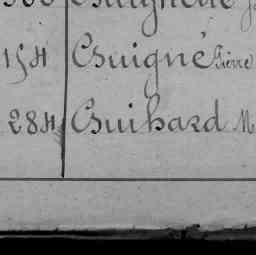 154 Guigné Pierre
284 Guihard M